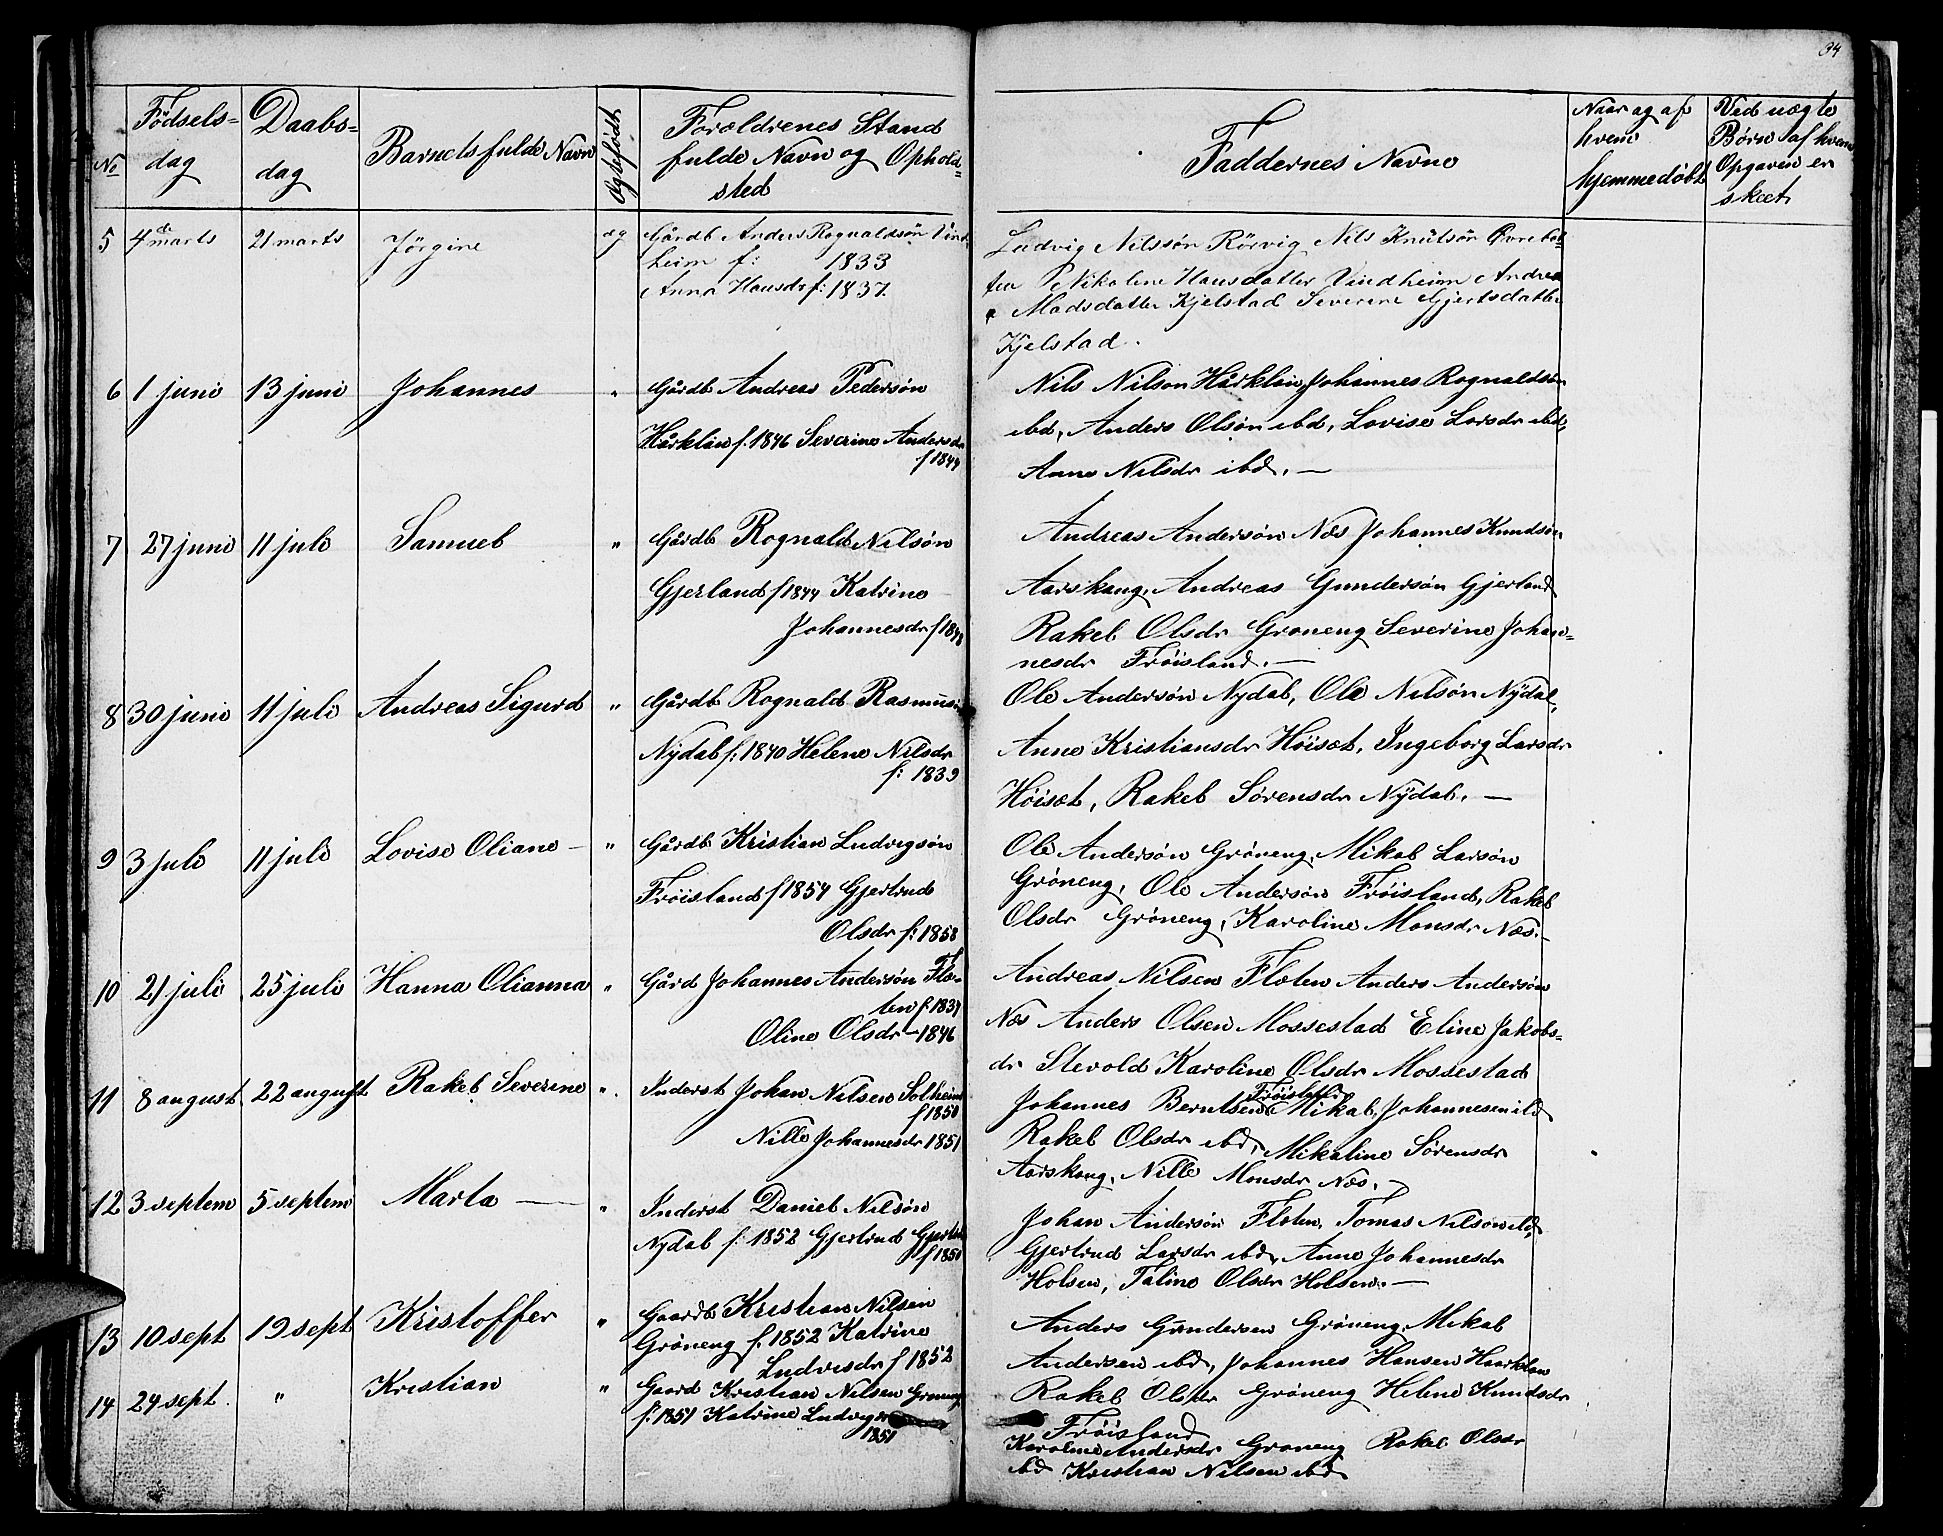 34
No
Födsels-
dag
Daabs-
dag
Barnets fulde Navn
Ægtefödt
Forældrenes Stand
fulde Navn og Ophold-
sted
Faddernes Navne
Naar og af
hvem
hjemmedöbt
Ved uægte
Börn af hvem
Opgaven er
skeet
5 4de marts 21 marts Jörgine æg Gårdb Anders Rognaldsön Vind-
heim f: 1833
Anna Hansdr f: 1837.
Ludvig Nilssön Rörvig Nils Knutsön Övrebot-
ten Nikoline Hansdatter Vindheim Andrea
Madsdatter Kjelstad Severine Gjertsdatter
Kjelstad.
6 1 juni 13 juni Johannes " Gårdb Andreas Pedersön
Hårklau f. 1846 Severine Andersdr
f 1844
Nils Nilson Hårklau, Johannes Rognaldsön
ibd, Anders Olsön ibd, Lovise Larsdr ibd,
Anne Nilsdr ibd. —
7 27 juni 11 juli Samuel " Gårdb Rognald Nilsön
Gjerland f 1844 Katrine
Johannesdr f 1848
Andreas Andersön Nes Johannes Knudsön
Aarskaug, Andreas Gundersön Gjerland
Rakel Olsdr Gröneng Severine Johan-
nesdr Fröisland. —
8 30 juni 11 juli Andreas Sigurd " Gårdb Rognald Rasmusön
Nydal f: 1840 Helene Nilsdr
f: 1839
Ole Andersön Nydal, Ole Nilsön Nydal,
Anne Kristiansdr Höiset, Ingeborg Larsdr
Höiset, Rakel Sörensdr Nydal. —
9 3 juli 11 juli Lovise Oliane — " Gårdb Kristian Ludvigsön
Fröisland f 1854 Gjertrud
Olsdr f: 1858
Ole Andersön Gröneng, Mikal Larsön
Gröneng, Ole Andersön Fröisland, Rakel
Olsdr Gröneng, Karoline Monsdr Næs. —
10 21 juli 25 juli Hanna Olianna " Gård Johannes Andersön Flæ-
ten f. 1837
Oline Olsdr — 1846
Andreas Nilsen Flæten Anders Andersön
Næs Anders Olsen Mossestad Eline Jakobs-
dr Stevold Karoline Olsdr Mossestad
11 8 august 22 august Rakel Severine " Inderst Johan Nilsen Solheim
f 1850
Nille Johannesdr 1851
Johannes Berntsen Fröisland Mikal Johannesen ibd
Rakel Olsdr ibd, Mikaline Sörensdr
Aarskaug, Nille Monsdr Næs. —
12 3 septem 5 septem Marta — " Inderst Daniel Nilsön
Nydal f: 1852 Gjertrud
f 1850
Johan Andersön Flæten, Tomas Nilsön ibd,
Gjertrud Larsdr ibd, Anne Johannesdr
Holsen, Taline Olsdr Holsen. —
13 10 sept 19 sept Kristoffer " Gaardb Kristian Nilsen
Gröneng f. 1852 Katrine
Ludvisdr f 1852
Anders Gundersen Gröneng, Mikal
Andersen ibd, Johannes Hansen Haarklau
Rakel Olsdr Gröneng Helene Knudsdr
Fröisland
14 24 sept. " Kristian " Gaard Kristian Nilsen Gröneng
f: 1851 Katrine
1851
Karoline Andersdr Gröneng Rakel Olsdr
ibd Kristian Nilsen ibd